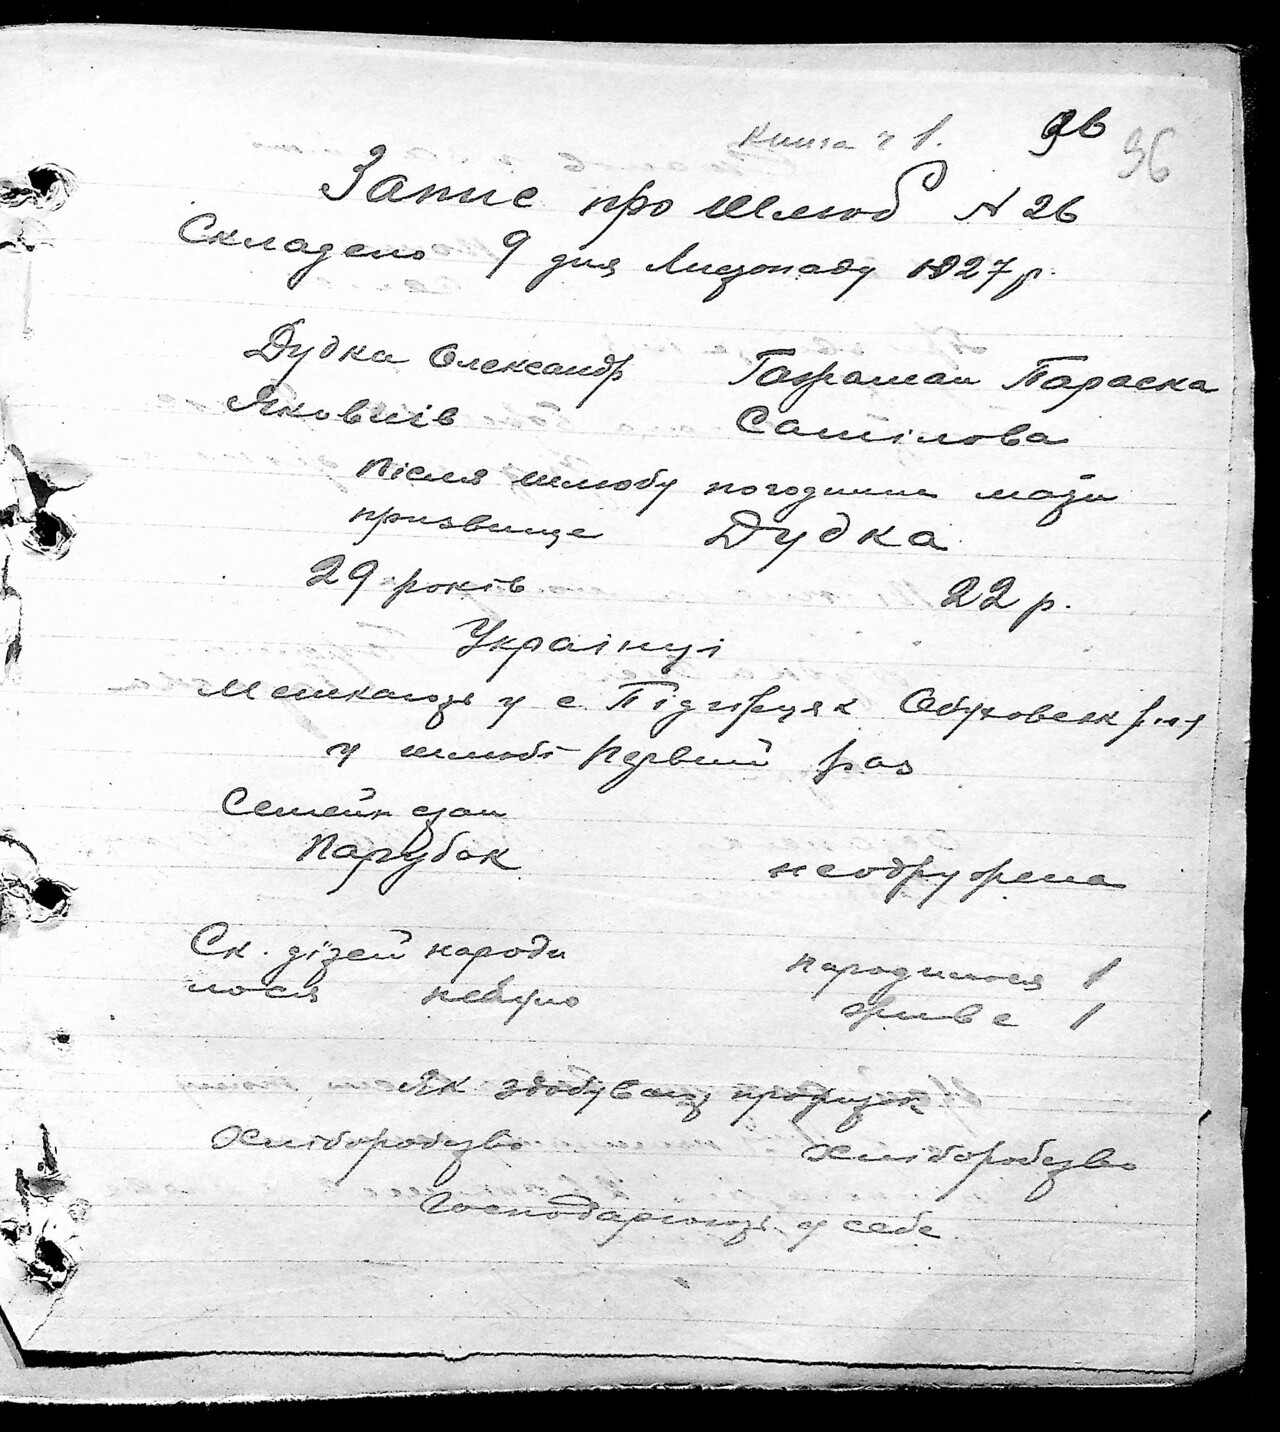 Книга ч 1. 36 36
Запис про шлюб N 26
Складено 9 дня Листопаду 1927 р.
Дудка Олександр Параска
Яковлів Самійлова
Після шлюбу погодились мати
призвище Дудка
29 років 22 р.
Українці
Мешкають у с. Підгірцях Обуховськ р-ну
у шлюбі первий раз
Семейн стан
Парубок неодружена
Ск. дітей народи народилося 1
лося небуло живе 1
Як здобувают прожиток
Хліборобство Хліборобство
Господарюють у себе